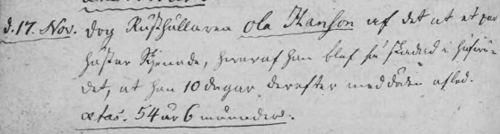 d. 17. Nov. dog Rusthållaren Ola Hanson af det at et par
hästar skenade, hvaraf han blef så skadad i hufvu-
det, at han 10 dagar derefter med döden afled.
ætas. 54 år 6 månader.